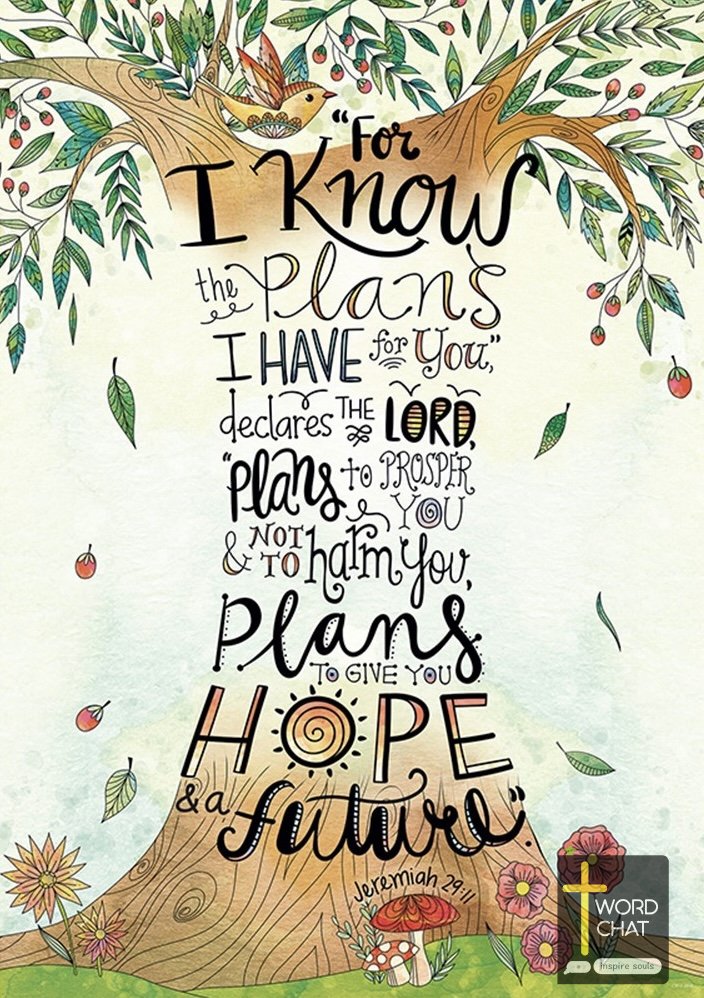 "For
I Know
the Plans
I HAVE for You,"
declares THE LORD,
"Plans to PROSPER
YOU
& NOT TO harm You,
Plans
TO GIVE YOU
HOPE
& a future".
Jeremiah 29:11
WORD
CHAT
Inspire souls